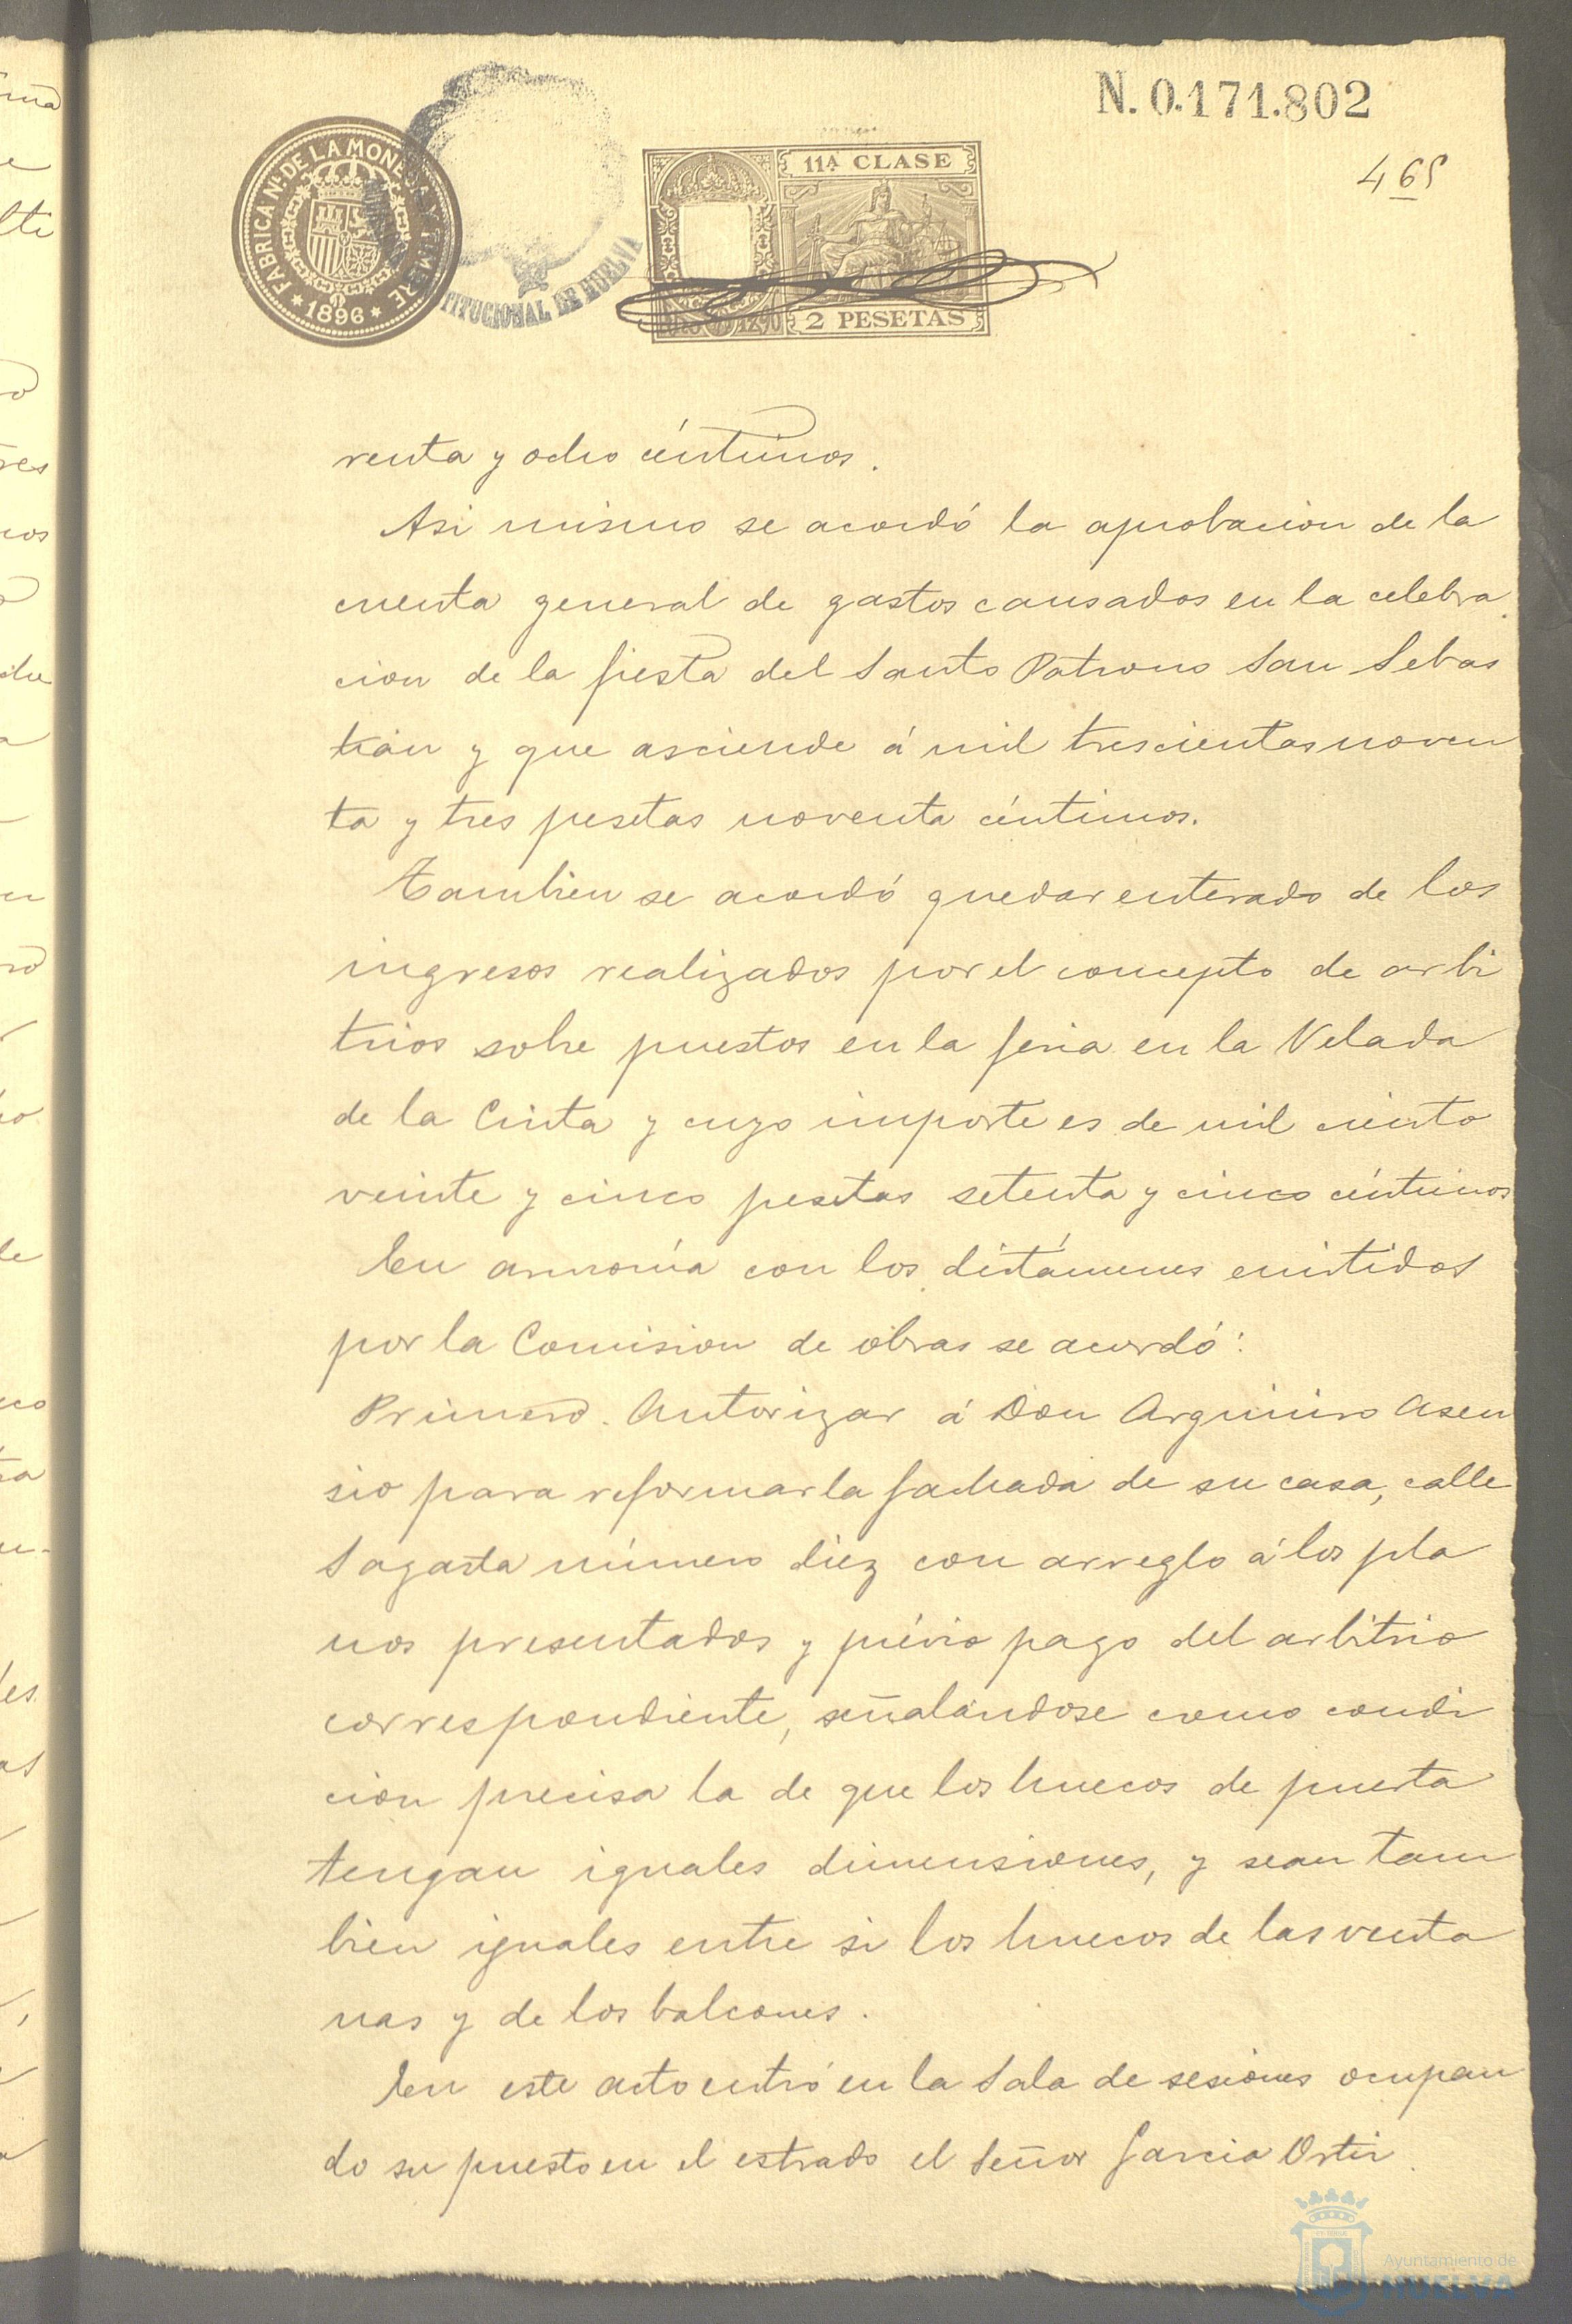 N. 0.171.802
465
FABRICA NL. DE LA MONEDA Y TIMBRE
* 1896 *
TITUCIONAL DE HUELVA
11A CLASE
2 PESETAS
renta y ocho céntimos.
Asi mismo se acordó la aprobacion de la
cuenta general de gastos causados en la celebra
cion de la fiesta del Santo Patrono San Sebas
tián y que asciende á mil trescientas noven
ta y tres pesetas noventa céntimos.
Tambien se acordó quedar enterado de los
ingresos realizados por el concepto de arbi
trios sobre puestos en la feria en la Velada
de la Cinta y cuyo importe es de mil ciento
veinte y cinco pesetas setenta y cinco céntimos
En armonía con los dictámenes emitidos
por la Comision de obras se acordó:
Primero. Autorizar á Don Argimiro Asen
sio para reformar la fachada de su casa, calle
Sagasta número diez con arreglo á los pla
nos presentados y prévio pago del arbitrio
correspondiente, señalándose como condi
cion precisa la de que los huecos de puerta
tengan iguales dimensiones, y sean tam
bien iguales entre si los huecos de las venta
nas y de los balcones.
En este acto entró en la Sala de sesiones ocupan
do su puesto en el estrado el Señor Garcia Ortiz.
Ayuntamiento de
HUELVA